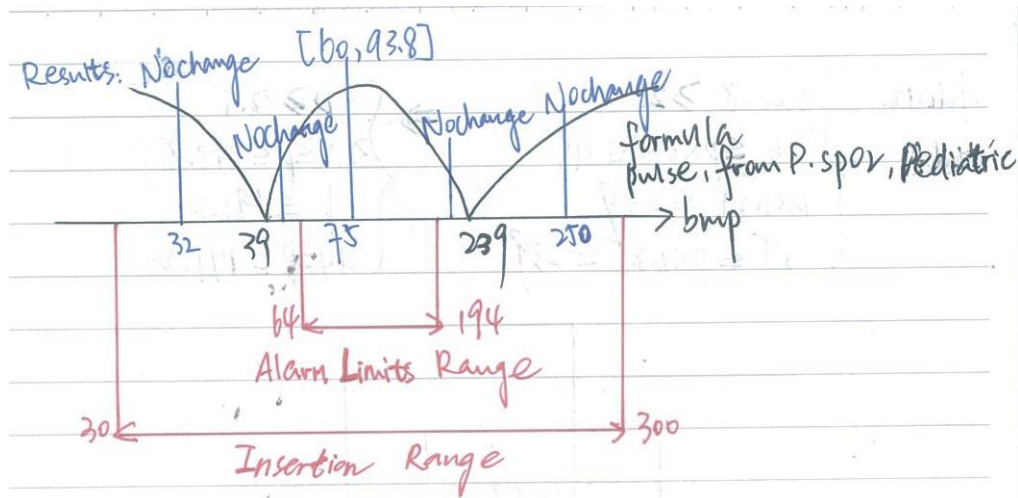 Results: Nochange [60, 93.8]
Nochange Nochange Nochange
formula
pulse, from P. spo2, Pediatric
bmp
32 39 75 239 250
64 194
Alarm Limits Range
30 300
Insertion Range